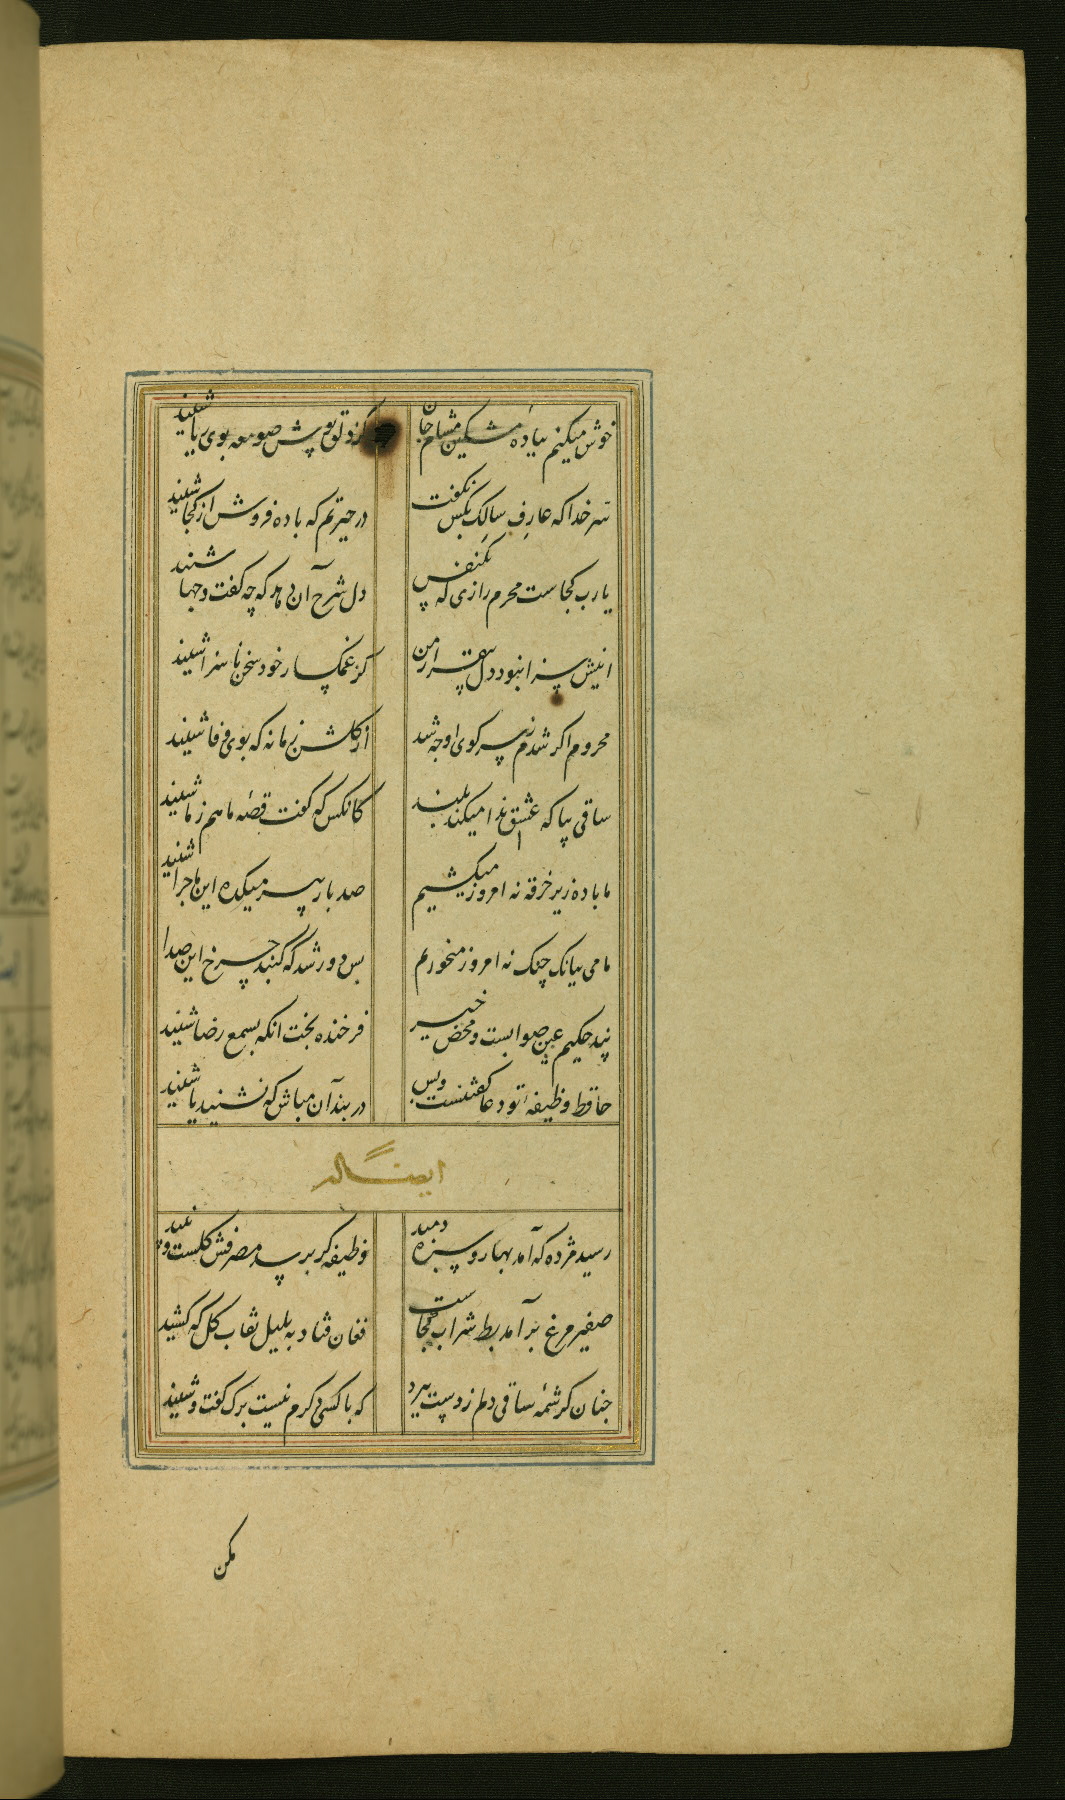 خوش میکنم بباده مشکین مشام جان کز دلق پوش صومعه بوی ریا شنید
سر خدا که عارف سالک بکس نکفت در حیرتم که باده فروش از کجا شنید
یارب کجاست محرم رازی که یکنفس دل شرح آن دهد که چه کفت و چها شنید
اینش سزا نبود دل حق کزار من کز غمکسار خود سخن ناسزا شنید
محروم اکر شدم ز سر کوی او چه شد از کلشن زمانه که بوی وفا شنید
ساقی بیا که عشق ندا میکند بلند کانکس که کفت قصه ما هم ز ما شنید
ما باده زیر خرقه نه امروز میکشیم صد بار پیر میکده این ماجرا شنید
ما می ببانک چنک نه امروز میخوریم بس دور شد که کنبد چرخ این صدا
پند حکیم عین صوابست و محض خیر فرخنده بخت آنکه بسمع رضا شنید
حافظ وظیفه تو دعا کفتنست و بس در بند آن مباش که نشنید یا شنید
ایضاً له
رسید مژده که آمد بهار و سبزه دمید وظیفه کر برسد مصرفش کلست و نبید
صفیر مرغ برآمد بط شراب کجاست فغان فتاد به بلبل نقاب کل که کشید
چنان کرشمه ساقی دلم ز دست ببرد که با کسی دکرم نیست برک کفت و شنید
مکن